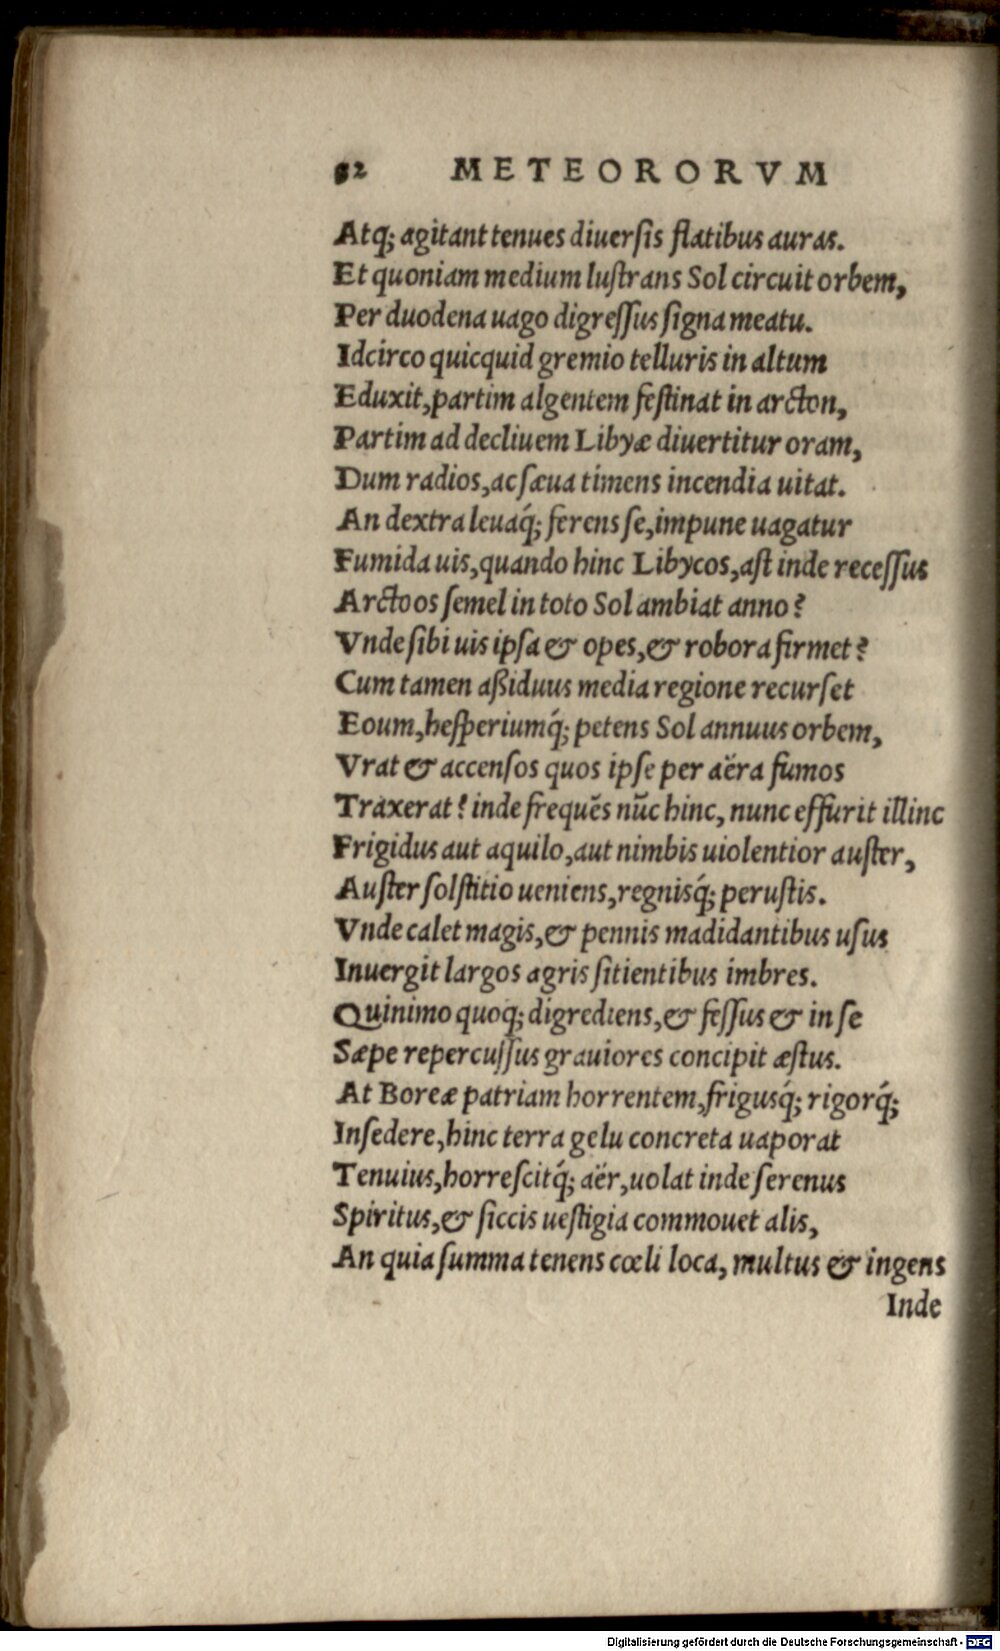 82 METEORORVM
Atq; agitant tenues diuersis flatibus auras.
Et quoniam medium lustrans Sol circuit orbem,
Per duodena uago digressus signa meatu.
Idcirco quicquid gremio telluris in altum
Eduxit, partim algentem festinat in arcton,
Partim ad decliuem Libyæ diuertitur oram,
Dum radios, ac sæua timens incendia uitat.
An dextra leuaq́; ferens se, impune uagatur
Fumida uis, quando hinc Libycos, ast inde recessus
Arctoos semel in toto Sol ambiat anno?
Vnde sibi uis ipsa & opes, & robora firmet?
Cum tamen aßiduus media regione recurset
Eoum, hesperiumq́; petens Sol annuus orbem,
Vrat & accensos quos ipse per aëra fumos
Traxerat? inde frequẽs nũc hinc, nunc effurit illinc
Frigidus aut aquilo, aut nimbis uiolentior auster,
Auster solstitio ueniens, regnisq́; perustis.
Vnde calet magis, & pennis madidantibus usus
Inuergit largos agris sitientibus imbres.
Quinimo quoq; digrediens, & fessus & in se
Sæpe repercussus grauiores concipit æstus.
At Boreæ patriam horrentem, frigusq́; rigorq́;
Insedere, hinc terra gelu concreta uaporat
Tenuius, horrescitq́; aër, uolat inde serenus
Spiritus, & siccis uestigia commouet alis,
An quia summa tenens cœli loca, multus & ingens
Inde
Digitalisierung gefördert durch die Deutsche Forschungsgemeinschaft - DFG